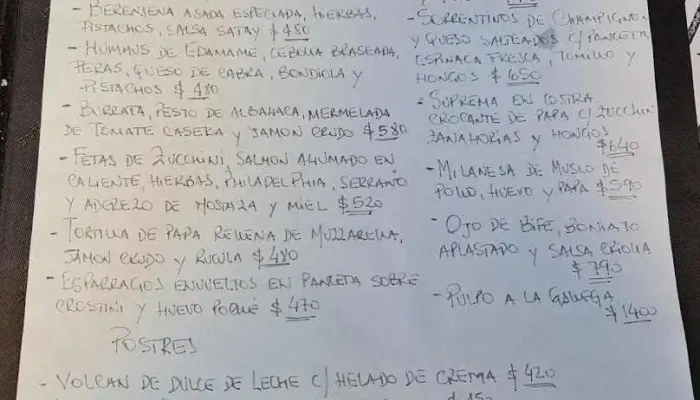 - BERENJENA ASADA ESPECIADA, HIERBAS,
PISTACHOS, SALSA SATAY $ 480
- HUMMUS DE EDAMAME, CEBOLLA BRASEADA,
PERAS, QUESO DE CABRA, BONDIOLA Y
PISTACHOS $ 480
- BURRATA, PESTO DE ALBAHACA, MERMELADA
DE TOMATE CASERA Y JAMON CRUDO $ 580
- FETAS DE ZUCCHINI, SALMON AHUMADO EN
CALIENTE, HIERBAS, PHILADELPHIA, SERRANO
Y ADEREZO DE MOSTAZA Y MIEL $ 520
- TORTILLA DE PAPA RELLENA DE MUZZARELLA,
JAMON CRUDO Y RUCULA $ 480
- ESPARRAGOS ENVUELTOS EN PANCETA SOBRE
CROSTINI Y HUEVO POCHÉ $ 470
- SORRENTINOS DE CHAMPIGNO
Y QUESO SALTEADOS C/PANCETA,
ESPINACA FRESCA, TOMILLO Y
HONGOS $ 650
- SUPREMA EN COSTRA
CROCANTE DE PAPA C/ZUCCHINI
ZANAHORIAS Y HONGOS
$ 640
- MILANESA DE MUSLO DE
POLLO, HUEVO Y PAPA $ 590
- OJO DE BIFE, BONIATO
APLASTADO Y SALSA CRIOLLA
$ 790
- PULPO A LA GALLEGA
$ 1400
POSTRES
- VOLCAN DE DULCE DE LECHE C/ HELADO DE CREMA $ 420